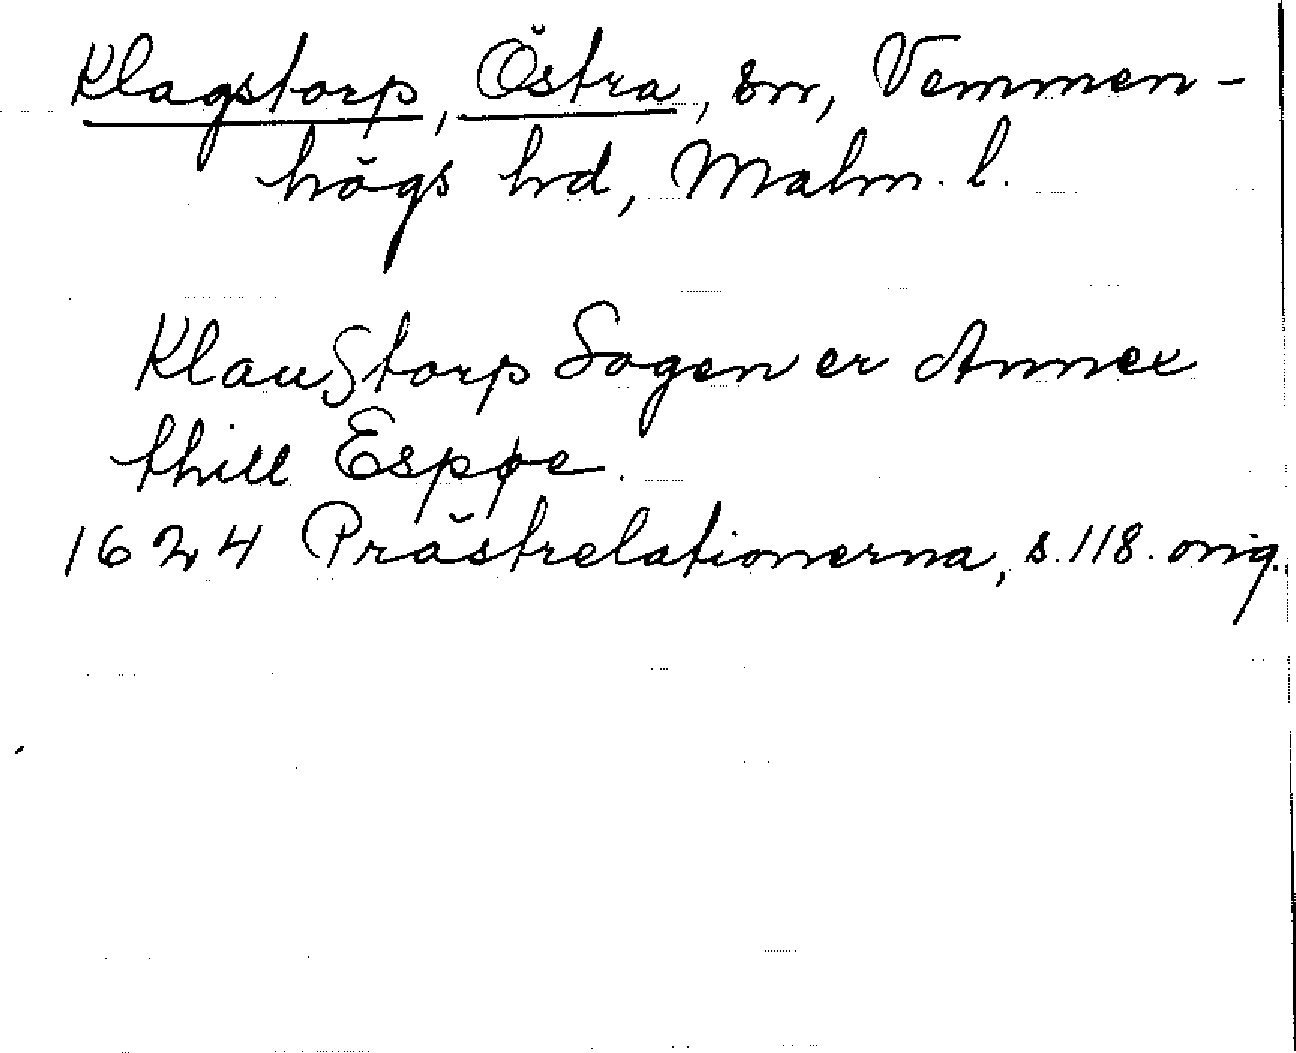 Klagstorp, Östra, sn, Vemmen-
högs hd, Malm. l.
KlauStorp Sogen er Annex
thill Esppe.
1624 Prästrelationerna, s. 118. orig.